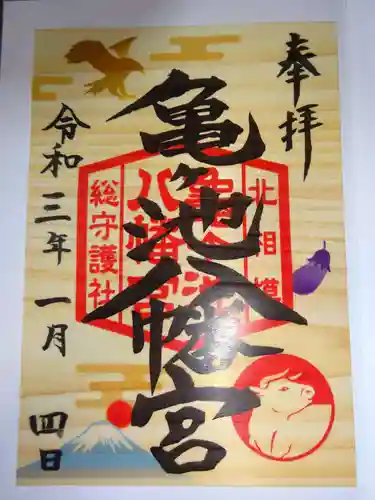 奉拝
亀ヶ池八幡宮
北相模
亀ヶ池
八幡宮
総守護社
令和三年一月四日